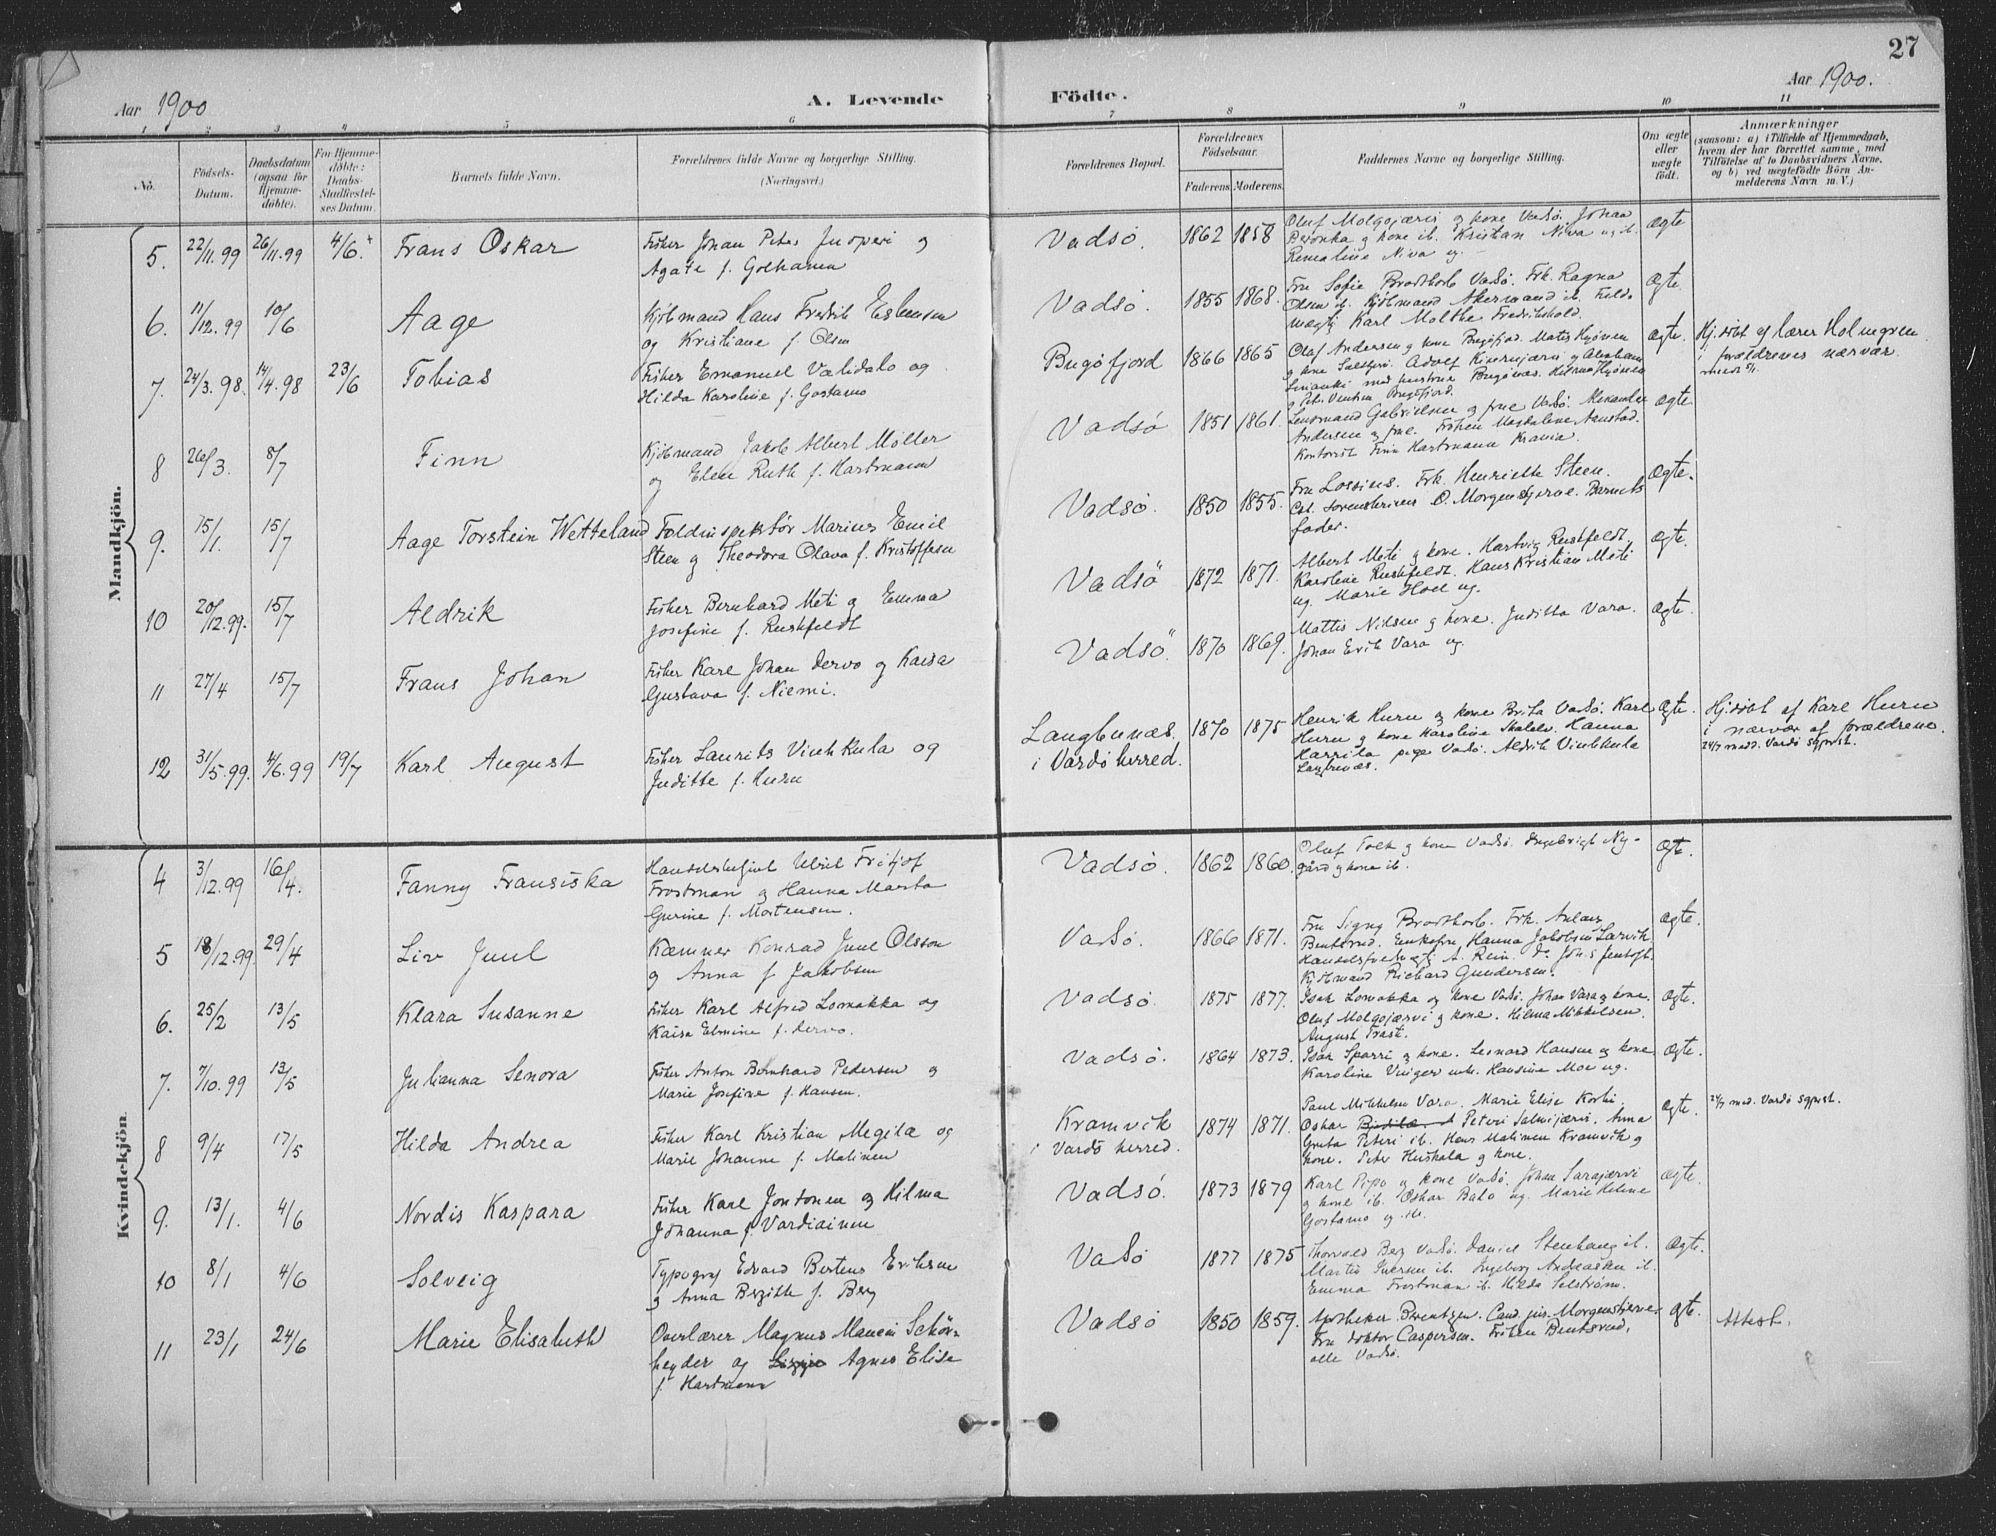 27
Aar 1900
A. Levende
Födte.
Aar 1900.
1 2 3 4 5 6 7 8 9 10 11
No.
Födsels-Datum.
Daabsdatum (ogsaa for Hjemme-döbte).
For Hjemme-döbte: Daabs-Stadfæstel-ses Datum.
Barnets fulde Navn.
Forældrenes fulde Navne og borgerlige Stilling.
(Næringsvei.)
Forældrenes Bopæl.
Forældrenes Födselsaar.
Faderens. Moderens.
Faddernes Navne og borgerlige Stilling.
Om ægte eller uægte födt.
Anmærkninger
(saasom: a) i Tilfælde af Hjemmedaab, hvem der har forrettet samme, med Tilföielse af to Daabsvidners Navne, og b) ved uægtefödte Börn An-melderens Navn m. V.)
Mandkjön.
5. 22/11.99 26/11.99 4/6. Frans Oskar
Fisker Johan Peter Junperi og
Agate f. Golhamm
Vadsø. 1862 1858
Oluf Molgojærvi og kone Vadsø. Johan
og kone ib. Kristian Niva ug. ib.
Niva ug.
Ægte
6. 11/12.99 10/6 Aage
Kjöbmand Hans Fredrik Esbensen
og Kristiane f. Olsen
Vadsø. 1855 1868.
Fru Sofie Brodtkorb Vadsø. Frk. Ragna
Olsen ib. Kjöbmand Akermand ib. Fuld-
mægtig Karl Molthe Fredrikshald.
Ægte
7. 24/3.98. 14/4.98 23/6 Tobias
Fisker Emanuel Validalo og
Hilda Karoline f. Gostamo
Bugøfjord 1866 1865
Olaf Andersen og kone Bugøfjord. Matis
og kone Adolf og Abraham
med hustru Bugønæs.
Bugøfjord.
Ægte.
Hj.döbt af lærer Holmgren
i forældrenes nærvær.
8 26/3. 8/7 Finn
Kjöbmand Jakob Albert Möller
og Elen Ruth f. Hartmann
Vadsø 1851 1861.
Lensmand Gabrielsen og frue Vadsø.
Andersen og frue. Fröken Magdalene Aanstad.
Kontorist Finn Hartmann
Ægte
9. 15/1. 15/7 Aage Torstein Wetteland
Toldinspektör Marius Emil
Steen og Theodora Olava f. Kristoffersen
Vadsø. 1850 1855.
Fru Lossius. Frk. Henriette Steen.
O. Morgenstjerne. Barnets
fader.
Ægte.
10 20/12.99. 15/7 Aldrik
Fisker Bernhard Meti og Emma
Josefine f. Rushfeldt
Vadsö 1872 1871.
Albert Meti og kone. Hartvig Rushfeldt,
Karoline Rushfeldt. Hans Kristian Meti
ug. Marie Hoel ug.
Ægte.
11 27/4 15/7 Frans Johan
Fisker Karl Johan Dervo og Kaisa
Gustava f. Niemi.
Vadsö. 1870 1869.
Mattis Nilsen og kone. Juditta Vara.
Johan Erik Vara ug
Ægte.
12 31/5.99. 4/6.99 19/7 Karl August
Fisker Laurits Vinikkula og
Juditte f. Huru
Langbunæs.
i Vardö herred. 1870 1875
Henrik Huru og kone Brita Vadsø. Karl
Huru og kone Karoline Hanna
Harrila pige Vadsö. Aldrik Vinikkula
Langbunæs.
Ægte.
Hj.döbt af Karl Huru
i nærvær af forældrene.
24/7 med. Vardö sgpst.
Kvindekjön
4 3/12.99 16/4. Fanny Fransiska
Handelsbetjent Ulrik Fritjof
Frostman og Hanna Marta
Gurine f. Mortensen.
Vadsø. 1862 1860.
Oluf Folk og kone Vadsø. Ingebrigt Ny-
gård og kone ib.
Ægte.
5 18/12.99. 29/4 Liv Juul
Kæmner Konrad Juul Olsson
og Anna f. Jakobsen
Vadsø. 1866 1871.
Fru Signy Brodtkorb. Frk.
Bentsrud. Enkefru Hanna Jakobsen Larvik
Handelsfuldmægtig A. Rein. Do Johs
Kjöbmand Richard Gundersen.
Ægte.
6. 25/2 13/5 Klara Susanne
Fisker Karl Alfred Lomakka og
Kaisa Elmine f. Dervo.
Vadsø. 1875 1877.
Isak Lomakka og kone Vadsø. Johan Vara og kone.
Oluf Molgojærvi og kone. Hilma Mikkelsen.
August Trast.
Ægte.
7. 7/10.99 13/5 Julianna Senora
Fisker Anton Bernhard Pedersen og
Marie Josefine f. Hansen.
Vadsø. 1864 1873.
Isak Sparri og kone. Leonard Hansen og kone
Karoline Vinger Hansine Moe ug.
Ægte.
8 9/4 17/5 Hilda Andrea
Fisker Karl Kristian Megila og
Marie Johanne f. Matinen
Kramvik
i Vardö herred. 1874 1871.
Paul Mikkelsen Vara. Marie Elise Korbi.
Oskar Peteri Salmijærvi. Anna
Greta Peteri ib. Hans Matinen Kramvik og
kone. Peter Huskala og kone.
Ægte.
24/7 med. Vardö sgpst.
9. 13/1. 4/6 Nordis Kaspara
Fisker Karl Jontonen og Hilma
Johanna f. Vardiainen
Vadsø. 1873 1879
Karl Pipo og kone Vadsø. Johan Sarajærvi
og kone ib. Oskar Balo ug. Marie Helene
Gostamo ug. ib.
Ægte.
10 8/1 4/6 Solveig
Typograf Edvard Berteus Eriksen
og Anna Bergitte f. Berg
Vadsø 1877 1875
Thorvald Berg Vadsø. Daniel Stenhaug ib.
Martin Iversen ib. Ingeborg Andreassen ib.
Emma Frostman ib. Hilda Selström.
Ægte.
11 23/1 24/6 Marie Elisabeth
Overlærer Magnus Schön-
heyder og Lizzie Agnes Elise
f. Hartmann
Vadsø 1850 1859.
Apotheker Brentzen. Cand. jur. Morgenstjerne
Fru doktor Caspersen. Fröken Bentsrud,
alle Vadsø.
Ægte.
Attest.